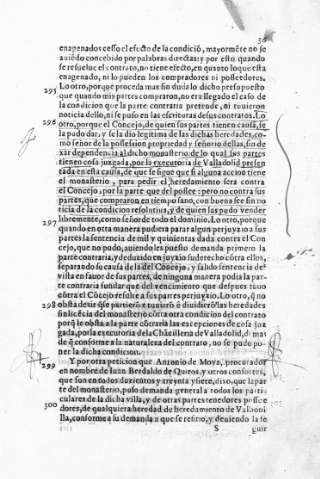 enagenados cessò el efecto de la condiciõ, mayormẽte no se
auiẽdo concebido por palabras directas: y por esto quando
se resuelue el contrato, no tiene efecto, en quanto lo que està
enagenado, ni lo pueden los compradores ni possedores.
295 Lo otro, porque proceda mas sin duda lo dicho presupuesto
que quando mis partes compraron, no era llegado el caso de
la condicion que la parte contraria pretende, ni tuuieron
noticia dello, ni se puso en las escrituras de sus contratos. Lo
296 otro, porque el Concejo, de quien sus partes tienen causa, se
la pudo dar, y se la dio legitima de las dichas heredades, co-
mo señor de la possession propriedad y señorio dellas, sin de
xar dependencia al dicho monasterio de lo qual sus partes
tienen cosa juzgada, por la executoria de Valladolid presen
tada en esta causa, de que se sigue que si alguna accion tiene
el monasterio, para pedir el heredamiento sera contra
el Concejo, por la parte que del possee: pero no contra sus
partes, que compraron en tiempo sano, con buena fee sin no
ticia de la condicion resolutiua, y de quien las pudo vender
libremente, como señor de todo el dominio. Lo otro, porque
297 quando en otra manera pudiera parar algun perjuyzio a sus
partes la sentencia de mil y quinientas dada contra el Con
cejo, que no pudo, auiendoles puesto demanda primero la
parte contraria, y deduzido en juyzio su derecho cõtra ellos,
separando su causa de la del Concejo, y salido sentencia de
vista en fauor de sus partes, de ninguna manera podia la par-
te contraria fundar que del vencimiento que despues tuuo
cõtra el Cõcejo resulte a sus partes perjuyzio. Lo otro, q̃ no
298 obsta dezir
sin licẽcia del monasterio cõtra otra condicion del contrato
porq̃ le obsta a la parte cõtraria las excepciones de cosa juz
gada, por la executoria de la Chãcilleria de Valladolid, de mas
de q̃ conforme a la naturaleza del contrato, no se pudo po-
ner la dicha condicion.
299 Y por otra peticion que Antonio de Moya, procurador
en nombre de Iuan Berdaldo de Quiros, y otros consortes,
que son en todos dozientos y treynta y siete, dixo, que la par
te del monasterio, puso demanda general a todos los parti-
culares de la dicha villa, y de otras partes tenedores posse e
dores, de qualquiera heredad de heredamiento de
300 lla, conforme a su demanda a que se refirio, y deuiendo la fo
S guir